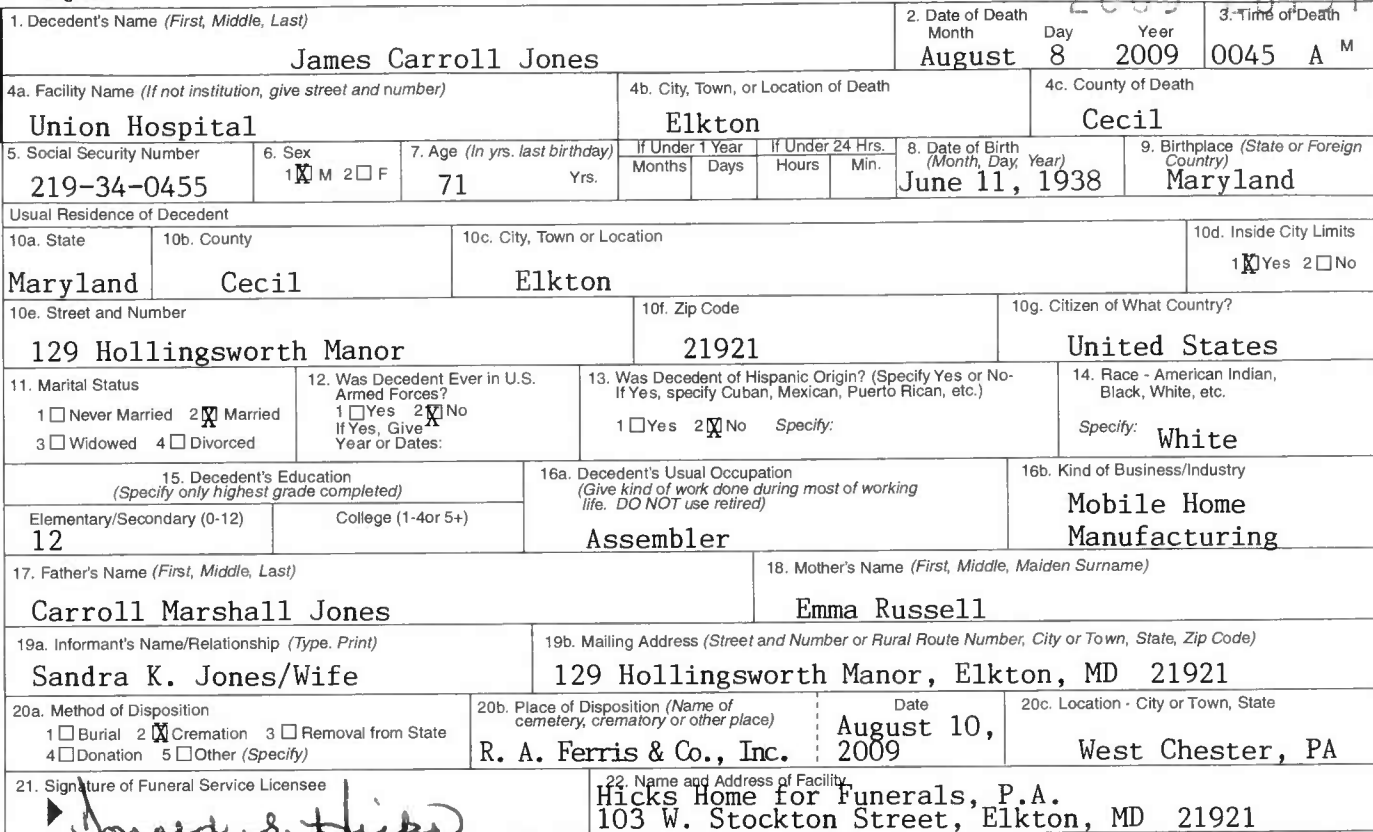 1. Decedent's Name (First, Middle, Last)
James Carroll Jones
2. Date of Death
Month Day Year
August 8 2009
3. Time of Death
0045 A M
4a. Facility Name (If not institution, give street and number)
Union Hospital
4b. City, Town, or Location of Death
Elkton
4c. County of Death
Cecil
5. Social Security Number
219-34-0455
6. Sex
1 X M 2 ☐ F
7. Age (In yrs. last birthday)
71 Yrs.
If Under 1 Year
Months Days
If Under 24 Hrs.
Hours Min.
8. Date of Birth
(Month, Day, Year)
June 11, 1938
9. Birthplace (State or Foreign
Country)
Maryland
Usual Residence of Decedent
10a. State
Maryland
10b. County
Cecil
10c. City, Town or Location
Elkton
10d. Inside City Limits
1 X Yes 2 ☐ No
10e. Street and Number
129 Hollingsworth Manor
10f. Zip Code
21921
10g. Citizen of What Country?
United States
11. Marital Status
1 ☐ Never Married 2 X Married
3 ☐ Widowed 4 ☐ Divorced
12. Was Decedent Ever in U.S.
Armed Forces?
1 ☐ Yes 2 X No
If Yes, Give
Year or Dates:
13. Was Decedent of Hispanic Origin? (Specify Yes or No-
If Yes, specify Cuban, Mexican, Puerto Rican, etc.)
1 ☐ Yes 2 X No Specify:
14. Race - American Indian,
Black, White, etc.
Specify: White
15. Decedent's Education
(Specify only highest grade completed)
Elementary/Secondary (0-12)
12
College (1-4or 5+)
16a. Decedent's Usual Occupation
(Give kind of work done during most of working
life. DO NOT use retired)
Assembler
16b. Kind of Business/Industry
Mobile Home
Manufacturing
17. Father's Name (First, Middle, Last)
Carroll Marshall Jones
18. Mother's Name (First, Middle, Maiden Surname)
Emma Russell
19a. Informant's Name/Relationship (Type. Print)
Sandra K. Jones/Wife
19b. Mailing Address (Street and Number or Rural Route Number, City or Town, State, Zip Code)
129 Hollingsworth Manor, Elkton, MD 21921
20a. Method of Disposition
1 ☐ Burial 2 X Cremation 3 ☐ Removal from State
4 ☐ Donation 5 ☐ Other (Specify)
20b. Place of Disposition (Name of
cemetery, crematory or other place)
R. A. Ferris & Co., Inc.
Date
August 10,
2009
20c. Location - City or Town, State
West Chester, PA
21. Signature of Funeral Service Licensee
22. Name and Address of Facility
Hicks Home for Funerals, P.A.
103 W. Stockton Street, Elkton, MD 21921